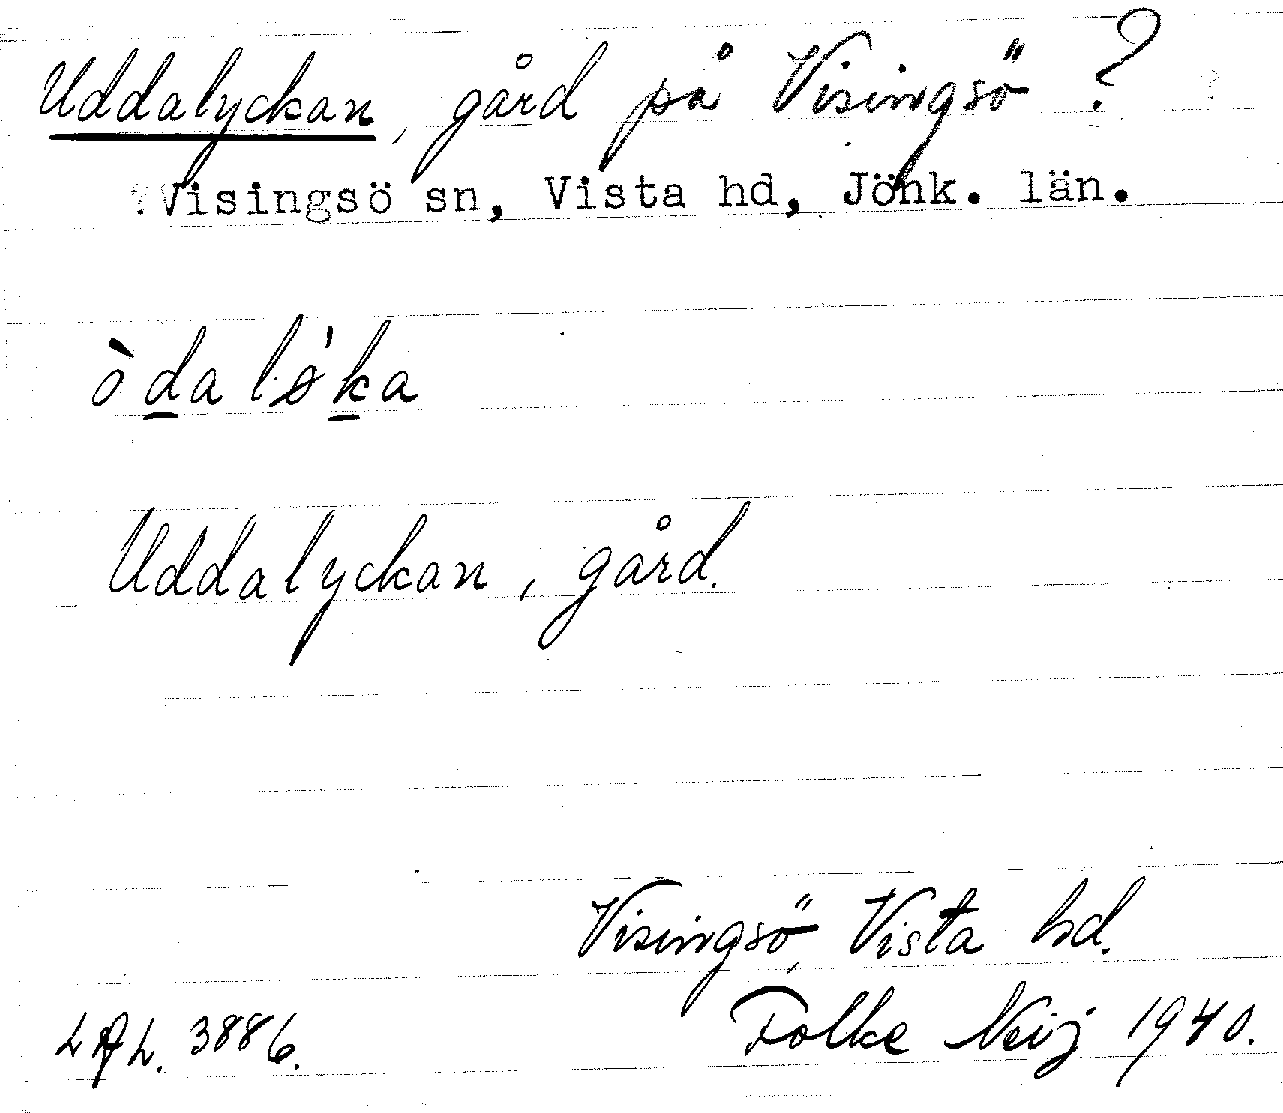 Uddalyckan, gård på Visingsö ?
?Visingsö sn, Vista hd, Jönk. län.
òdalǿka
Uddalyckan, gård.
Visingsö, Vista hd.
Folke Neij 1940.
LAL. 3886.